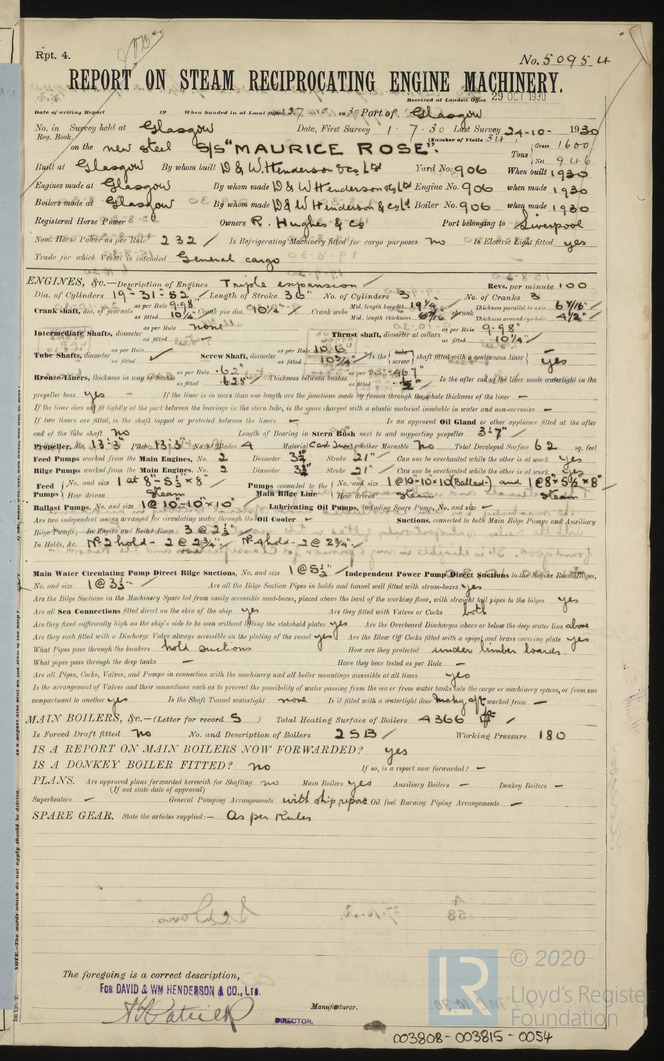 Rpt. 4.
No. 50954
REPORT ON STEAM RECIPROCATING ENGINE MACHINERY.
Received at London Office 29 OCT 1930
Date of writing Report 19 When handed in at Local 27 10 30 Port of Glasgow
No. in Reg. Book. Survey held at Glasgow Date, First Survey 1-7-30 Last Survey 24-10- 1930
(Number of Visits 34)
on the new steel S/S "MAURICE ROSE". Tons Gross 1600 Net 946
Built at Glasgow By whom built D & W. Henderson & Co Ltd Yard No. 906 When built 1930
Engines made at Glasgow By whom made D & W Henderson & Co Ltd Engine No. 906 when made 1930
Boilers made at Glasgow By whom made D & W Henderson & Co Ld Boiler No. 906 when made 1930
Registered Horse Power Owners R. Hughes & Co Port belonging to Liverpool
Nom. Horse Power as per Rule 232 Is Refrigerating Machinery fitted for cargo purposes no Is Electric Light fitted yes
Trade for which Vessel is intended General cargo
ENGINES, &c.—Description of Engines Triple expansion Revs. per minute 100
Dia. of Cylinders 19-31-52 Length of Stroke 36" No. of Cylinders 3 No. of Cranks 3
Crank shaft, dia. of journals as per Rule 9.98 as fitted 10¼" Crank pin dia. 10½" Crank webs Mid. length breadth 19¼" Mid. length thickness 6⅞" shrunk Thickness parallel to axis 6⅞" Thickness around eyehole 4½"
Intermediate Shafts, diameter as per Rule none as fitted Thrust shaft, diameter at collars as per Rule 9.98" as fitted 10¼"
Tube Shafts, diameter as per Rule as fitted Screw Shaft, diameter as per Rule 10.6 as fitted 10¾" Is the tube screw shaft fitted with a continuous liner yes
Bronze Liners, thickness in way of bushes as per Rule .62" as fitted .625" Thickness between bushes as per Rule .467 as fitted ½" Is the after end of the liner made watertight in the
propeller boss yes If the liner is in more than one length are the joints made by fusion through the whole thickness of the liner —
If the liner does not fit tightly at the part between the bearings in the stern tube, is the space charged with a plastic material insoluble in water and non-corrosive —
If two liners are fitted, is the shaft lapped or protected between the liners — Is an approved Oil Gland or other appliance fitted at the after
end of the tube shaft no Length of Bearing in Stern Bush next to and supporting propeller 3'-7"
Propeller, dia. 13'-3" Pitch 13'-3" No. of Blades 4 Material Cast Iron whether Moveable no Total Developed Surface 62 sq. feet
Feed Pumps worked from the Main Engines, No. 2 Diameter 3½" Stroke 21" Can one be overhauled while the other is at work yes
Bilge Pumps worked from the Main Engines, No. 2 Diameter 3½" Stroke 21" Can one be overhauled while the other is at work yes
Feed Pumps No. and size 1 at 8"-5½"×8" How driven Steam Pumps connected to the Main Bilge Line No. and size 1@10-10×10 (Ballast) and 1@8"-5½"×8" How driven Steam Steam
Ballast Pumps, No. and size 1@10"-10"×10" Lubricating Oil Pumps, including Spare Pump, No. and size —
Are two independent means arranged for circulating water through the Oil Cooler — Suctions, connected to both Main Bilge Pumps and Auxiliary
Bilge Pumps;—In Engine and Boiler Room 3@2½"
In Holds, &c. No 2 hold - 2@2¾". No 4 hold - 2@2¾".
Main Water Circulating Pump Direct Bilge Suctions, No. and size 1@5½" Independent Power Pump Direct Suctions to the Engine Room Bilges,
No. and size 1@3½" Are all the Bilge Suction Pipes in holds and tunnel well fitted with strum-boxes yes
Are the Bilge Suctions in the Machinery Space led from easily accessible mud-boxes, placed above the level of the working floor, with straight tail pipes to the bilges yes
Are all Sea Connections fitted direct on the skin of the ship yes Are they fitted with Valves or Cocks both
Are they fixed sufficiently high on the ship's side to be seen without lifting the stokehold plates yes Are the Overboard Discharges above or below the deep water line above
Are they each fitted with a Discharge Valve always accessible on the plating of the vessel yes Are the Blow Off Cocks fitted with a spigot and brass covering plate yes
What Pipes pass through the bunkers hold suctions How are they protected under limber boards.
What pipes pass through the deep tanks — Have they been tested as per Rule —
Are all Pipes, Cocks, Valves, and Pumps in connection with the machinery and all boiler mountings accessible at all times yes
Is the arrangement of Valves and their connections such as to prevent the possibility of water passing from the sea or from water tanks into the cargo or machinery spaces, or from one
compartment to another yes Is the Shaft Tunnel watertight none Is it fitted with a watertight door Mchy aft worked from —
MAIN BOILERS, &c.—(Letter for record S) Total Heating Surface of Boilers 4366
Is Forced Draft fitted no No. and Description of Boilers 2SB Working Pressure 180
IS A REPORT ON MAIN BOILERS NOW FORWARDED? yes
IS A DONKEY BOILER FITTED? no If so, is a report now forwarded? —
PLANS. Are approved plans forwarded herewith for Shafting no Main Boilers yes Auxiliary Boilers — Donkey Boilers —
(If not state date of approval)
Superheaters — General Pumping Arrangements with ship report Oil fuel Burning Piping Arrangements —
SPARE GEAR. State the articles supplied:— As per Rules
The foregoing is a correct description,
FOR DAVID & WM HENDERSON & CO., LTD.
Manufacturer.
DIRECTOR.
LR © 2020
Lloyd's Register
Foundation
003808-003815-0054